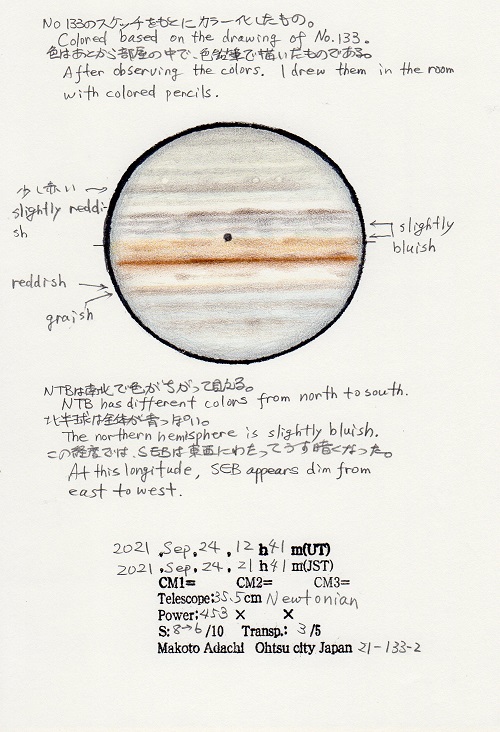 No 133のスケッチをもとにカラー化したもの。
Colored based on the drawing of No.133.
色はあとから部屋の中で、色鉛筆で描いたものである。
After observing the colors. I drew them in the room
with colored pencils.
少し赤い →
slightly reddi
sh
slightly
bluish
reddish
graish
NTBは南北で色がちがって見える。
NTB has different colors from north to south.
北半球は全体が青っぽい。
The northern hemisphere is slightly bluish.
この経度では、SEBは東西にわたってうす暗くなった。
At this longitude, SEB appears dim from
east to west.
2021 ,Sep,24 , 12 h41 m(UT)
2021 ,Sep,24, 21 h41 m(JST)
CM1= CM2= CM3=
Telescope:35.5cm Newtonian
Power:453 × ×
S: 8→6 /10 Transp.: 3 /5
Makoto Adachi Ohtsu city Japan 21-133-2